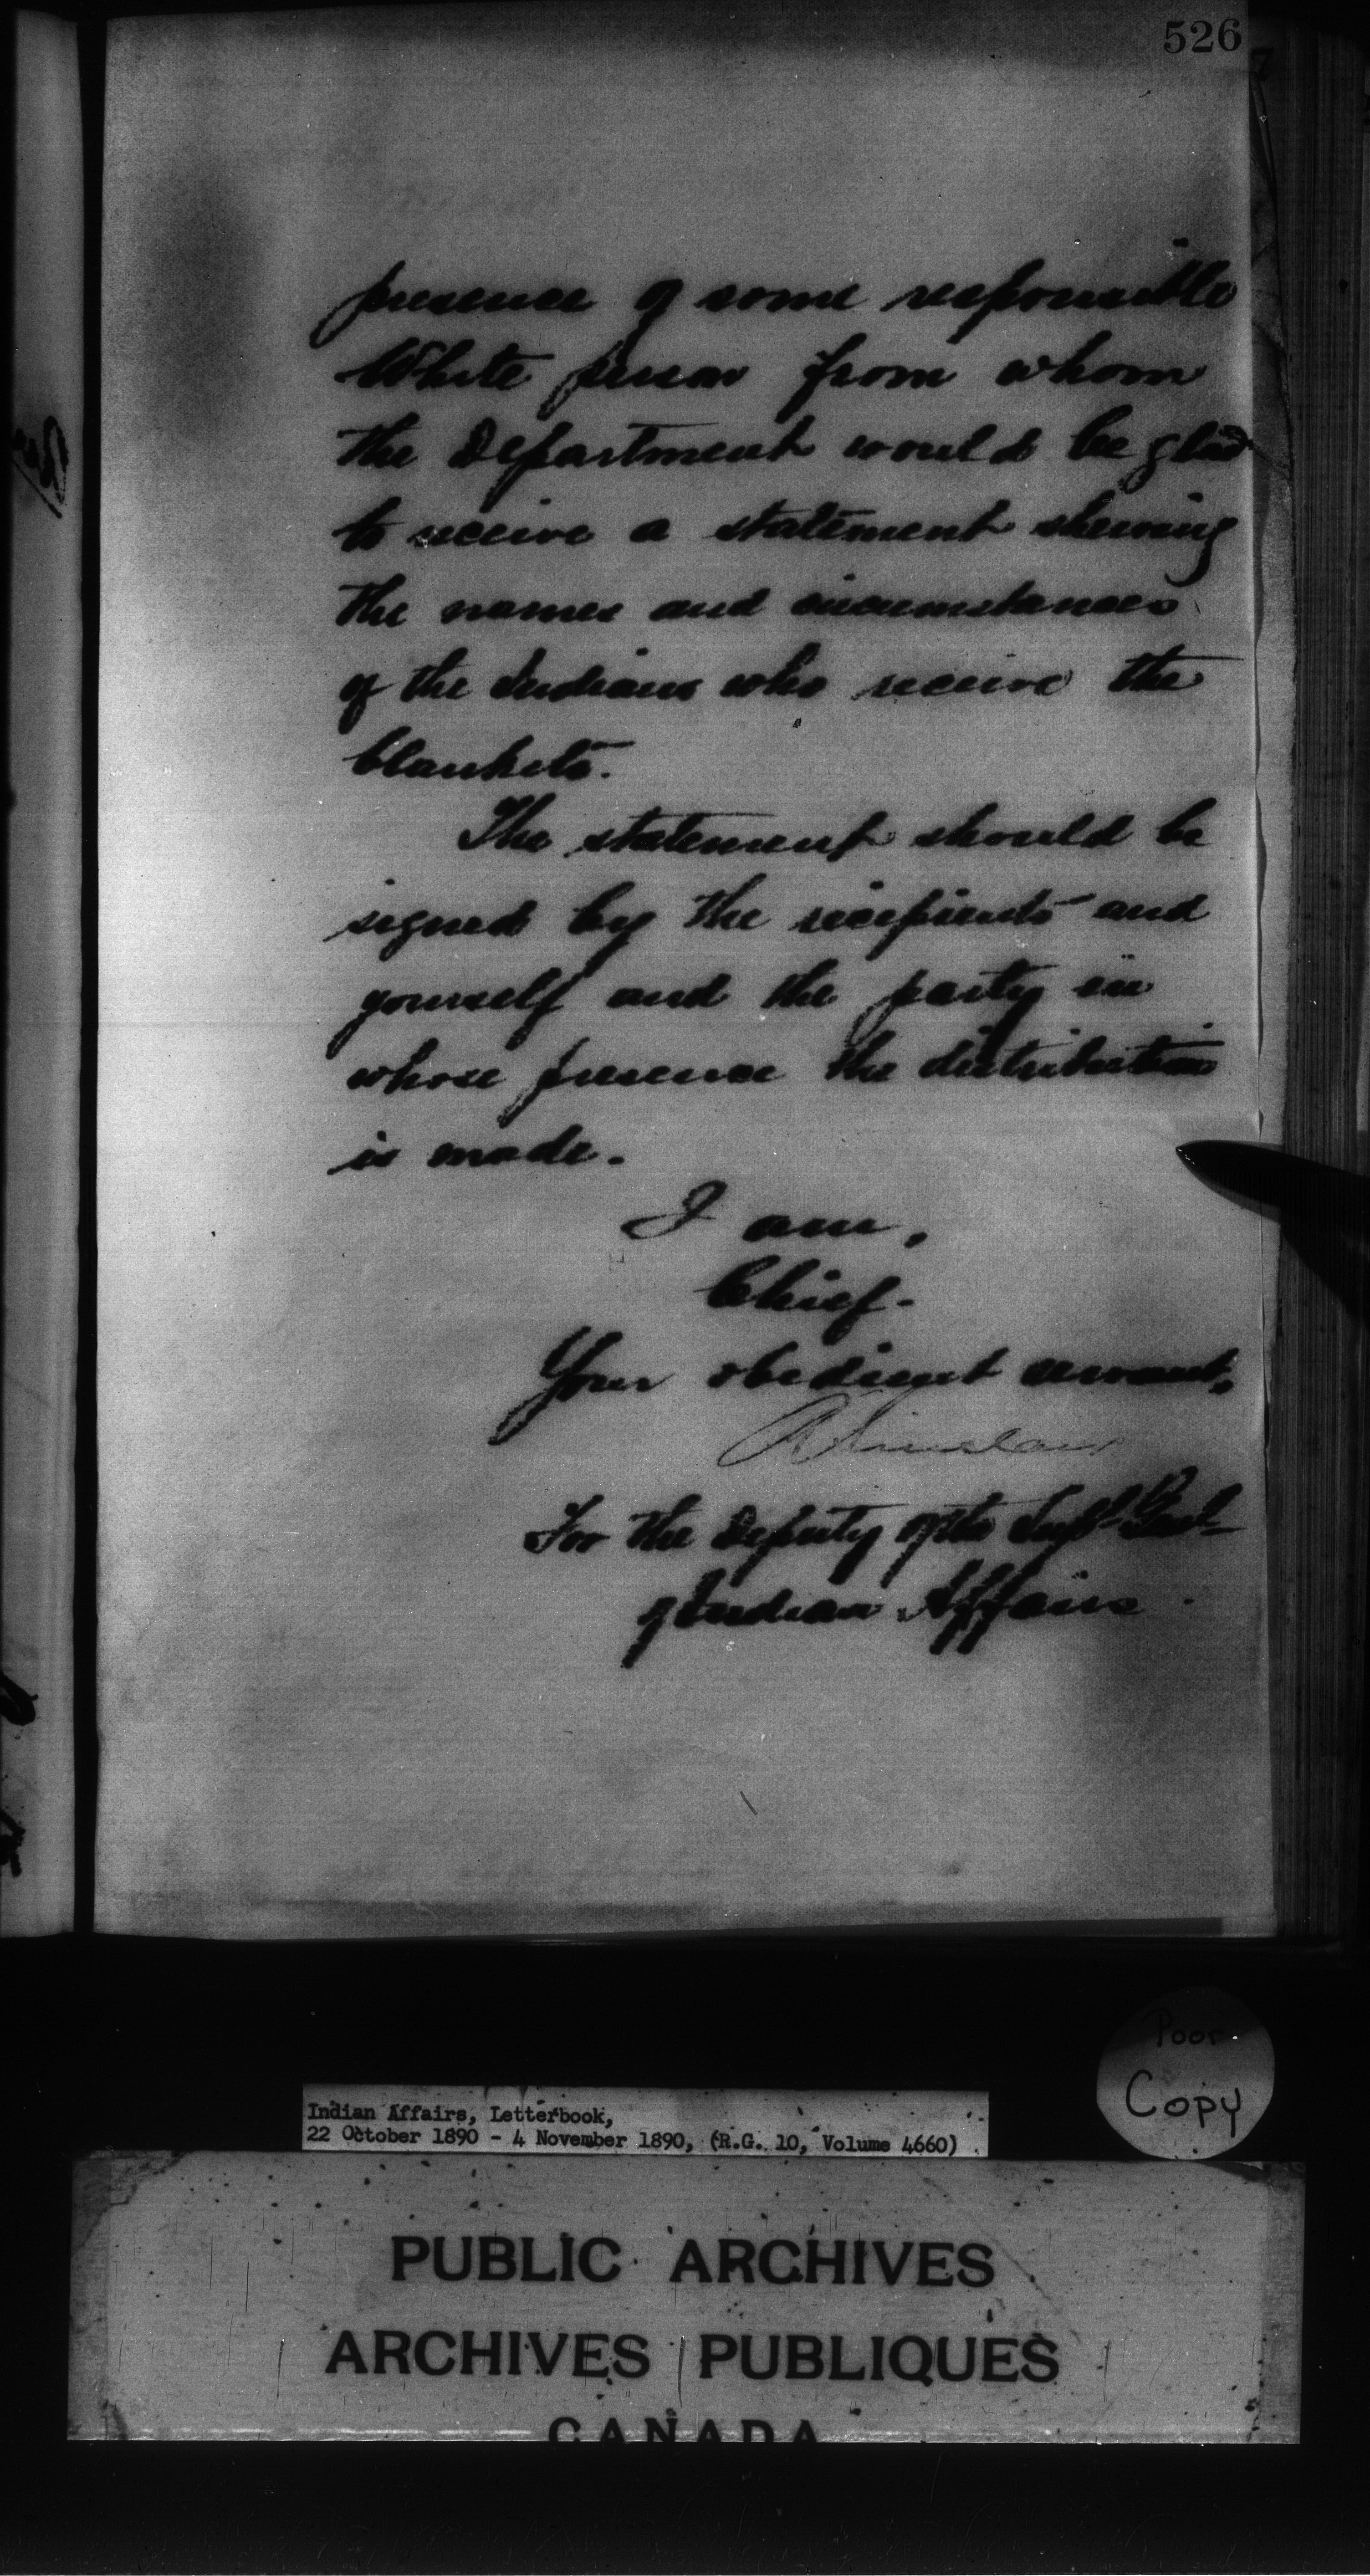 526
presence of some responsible
White person from whom
the Department would be glad
to receive a statement shewing
the names and circumstances
of the Indians who receive the
blankets.
The statement should be
signed by the recipients and
yourself and the party in
whose presence the distribution
is made.
I am,
Chief.
Your obedient servant,
R Sinclair
For the Deputy of the Supt. Genl
of Indian Affairs.
Poor
Copy
Indian Affairs, Letterbook,
22 October 1890 - 4 November 1890, (R.G. 10, Volume 4660)
PUBLIC ARCHIVES
ARCHIVES PUBLIQUES
CANADA